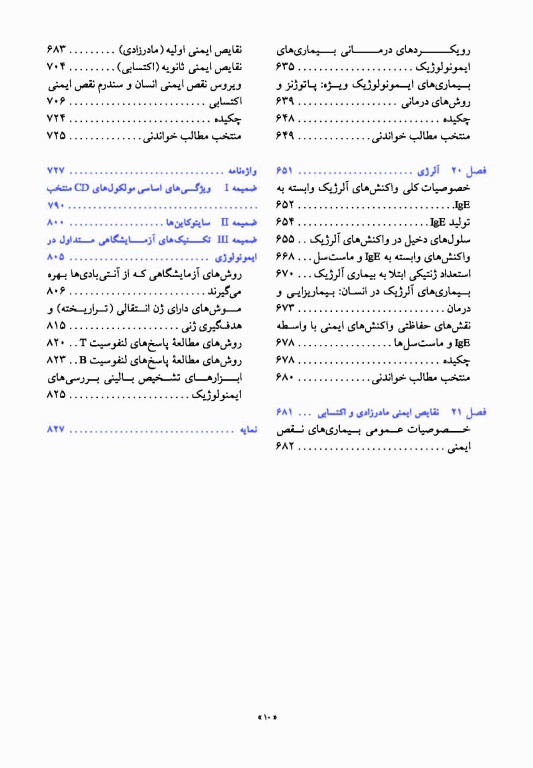 رویکردهای درمانی بیماری‌های
ایمونولوژیک ...................... ۶۳۵
بیماری‌های ایمونولوژیک ویژه: پاتوژنز و
روش‌های درمانی ................... ۶۳۹
چکیده ........................... ۶۴۸
منتخب مطالب خواندنی .............. ۶۴۹
فصل ۲۰ آلرژی ...................... ۶۵۱
خصوصیات کلی واکنش‌های آلرژیک وابسته به
IgE ............................. ۶۵۲
تولید IgE ......................... ۶۵۴
سلول‌های دخیل در واکنش‌های آلرژیک .. ۶۵۵
واکنش‌های وابسته به IgE و ماست‌سل ... ۶۶۸
استعداد ژنتیکی ابتلا به بیماری آلرژیک ... ۶۷۰
بیماری‌های آلرژیک در انسان: بیماریزایی و
درمان ............................ ۶۷۳
نقش‌های حفاظتی واکنش‌های ایمنی با واسطه
IgE و ماست‌سل‌ها .................. ۶۷۸
چکیده ........................... ۶۷۸
منتخب مطالب خواندنی .............. ۶۸۰
فصل ۲۱ نقایص ایمنی مادرزادی و اکتسابی ... ۶۸۱
خصوصیات عمومی بیماری‌های نقص
ایمنی ............................ ۶۸۲
نقایص ایمنی اولیه (مادرزادی) ......... ۶۸۳
نقایص ایمنی ثانویه (اکتسابی) ......... ۷۰۴
ویروس نقص ایمنی انسان و سندرم نقص ایمنی
اکتسابی .......................... ۷۰۶
چکیده ........................... ۷۲۴
منتخب مطالب خواندنی .............. ۷۲۵
واژه‌نامه ............................ ۷۲۷
ضمیمه I ویژگی‌های اساسی مولکول‌های CD منتخب
.................................... ۷۹۰
ضمیمه II سایتوکاین‌ها ................ ۸۰۰
ضمیمه III تکنیک‌های آزمایشگاهی متداول در
ایمونولوژی ......................... ۸۰۵
روش‌های آزمایشگاهی که از آنتی‌بادی‌ها بهره
می‌گیرند .......................... ۸۰۶
موش‌های دارای ژن انتقالی (تراریخته) و
هدف‌گیری ژنی ..................... ۸۱۵
روش‌های مطالعهٔ پاسخ‌های لنفوسیت T .. ۸۲۰
روش‌های مطالعهٔ پاسخ‌های لنفوسیت B .. ۸۲۳
ابزارهای تشخیص بالینی بررسی‌های
ایمنولوژیک ....................... ۸۲۵
نمایه .............................. ۸۲۷
« ۱۰ »